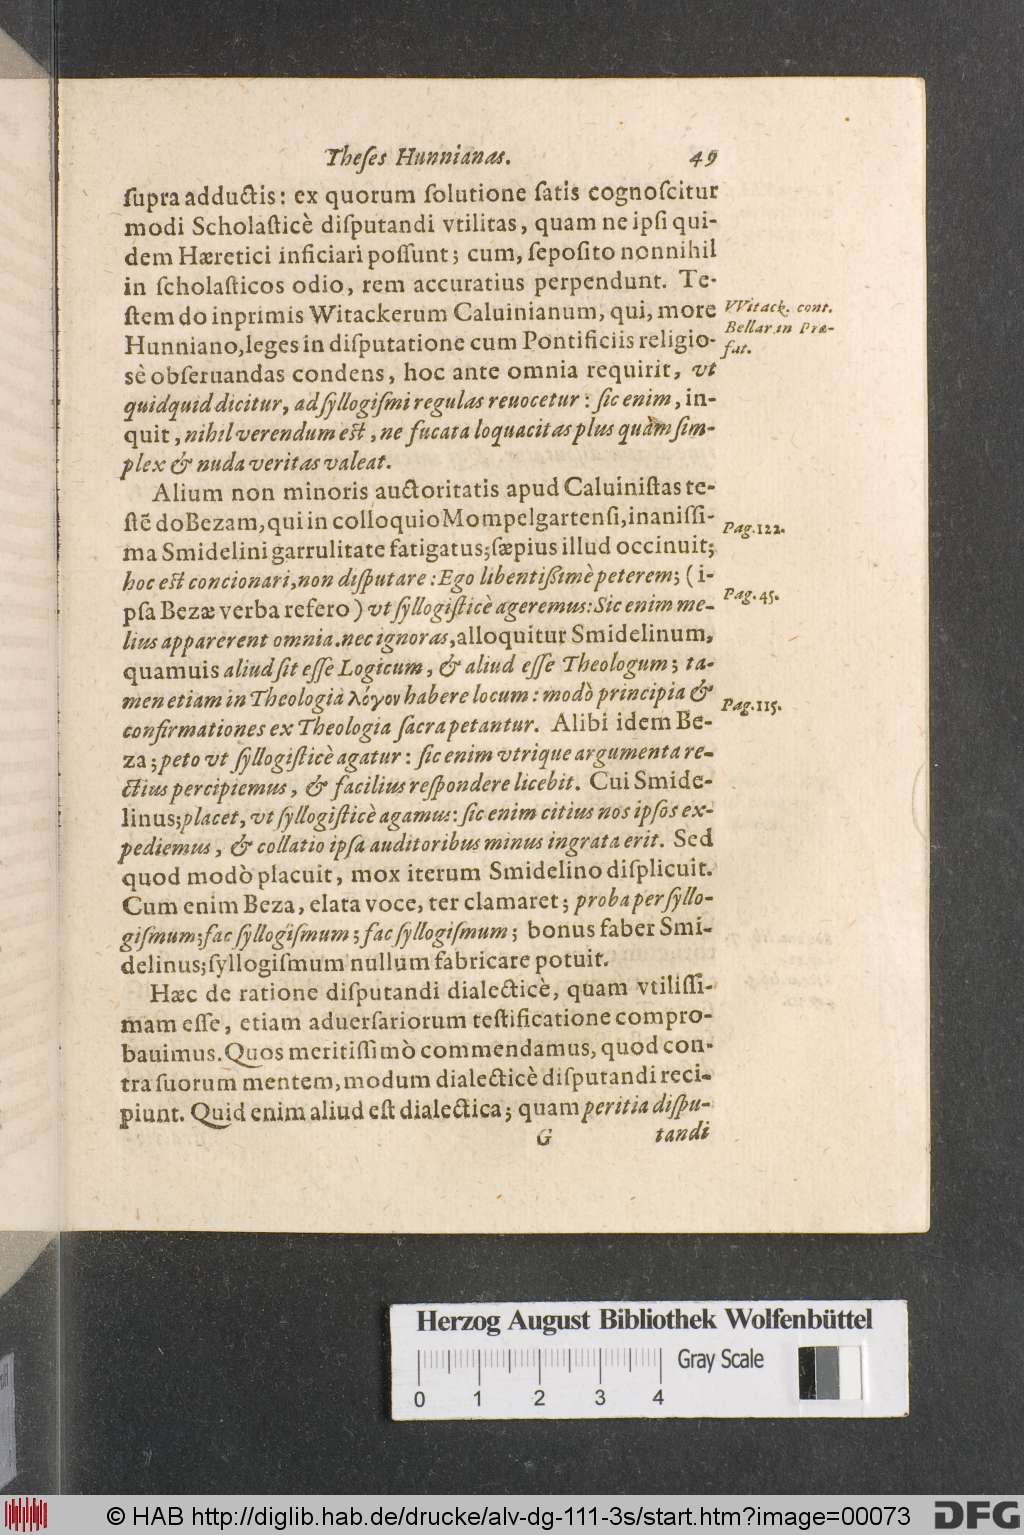 Theſes Hunnianas. 49
ſupra adductis: ex quorum ſolutione ſatis cognoſcitur
modi Scholaſticè diſputandi vtilitas, quam ne ipſi qui-
dem Hæretici inficiari poſſunt; cum, ſepoſito nonnihil
in ſcholaſticos odio, rem accuratius perpendunt. Te-
ſtem do inprimis Witackerum Caluinianum, qui, more
VVitack. cont.
Bellar. in Præ-
fat.
Hunniano, leges in diſputatione cum Pontificiis religio-
sè obſeruandas condens, hoc ante omnia requirit, vt
quidquid dicitur, ad ſyllogiſmi regulas reuocetur: ſic enim, in-
quit, nihil verendum eſt, ne fucata loquacitas plus quàm ſim-
plex & nuda veritas valeat.
Alium non minoris auctoritatis apud Caluiniſtas te-
ſtē do Bezam, qui in colloquio Mompelgartenſi, inaniſſi-
Pag. 122.
ma Smidelini garrulitate fatigatus; ſæpius illud occinuit;
hoc eſt concionari, non diſputare: Ego libentißimè peterem; (i-
Pag. 45.
pſa Bezæ verba refero) vt ſyllogiſticè ageremus: Sic enim me-
lius apparerent omnia. nec ignoras, alloquitur Smidelinum,
quamuis aliud ſit eſſe Logicum, & aliud eſſe Theologum; ta-
men etiam in Theologia λόγον habere locum: modò principia &
Pag. 115.
confirmationes ex Theologia ſacra petantur. Alibi idem Be-
za; peto vt ſyllogiſticè agatur: ſic enim vtrique argumenta re-
ctius percipiemus, & facilius reſpondere licebit. Cui Smide-
linus; placet, vt ſyllogiſticè agamus: ſic enim citius nos ipſos ex-
pediemus, & collatio ipſa auditoribus minus ingrata erit. Sed
quod modò placuit, mox iterum Smidelino diſplicuit.
Cum enim Beza, elata voce, ter clamaret; proba per ſyllo-
giſmum; fac ſyllogiſmum; fac ſyllogiſmum; bonus faber Smi-
delinus; ſyllogiſmum nullum fabricare potuit.
Hæc de ratione diſputandi dialecticè, quam vtiliſſi-
mam eſſe, etiam aduerſariorum teſtificatione compro-
bauimus. Quos meritiſſimò commendamus, quod con-
tra ſuorum mentem, modum dialecticè diſputandi reci-
piunt. Quid enim aliud eſt dialectica; quam peritia diſpu-
G tandi
Herzog August Bibliothek Wolfenbüttel
Gray Scale
0 1 2 3 4
© HAB http://diglib.hab.de/drucke/alv-dg-111-3s/start.htm?image=00073 DFG